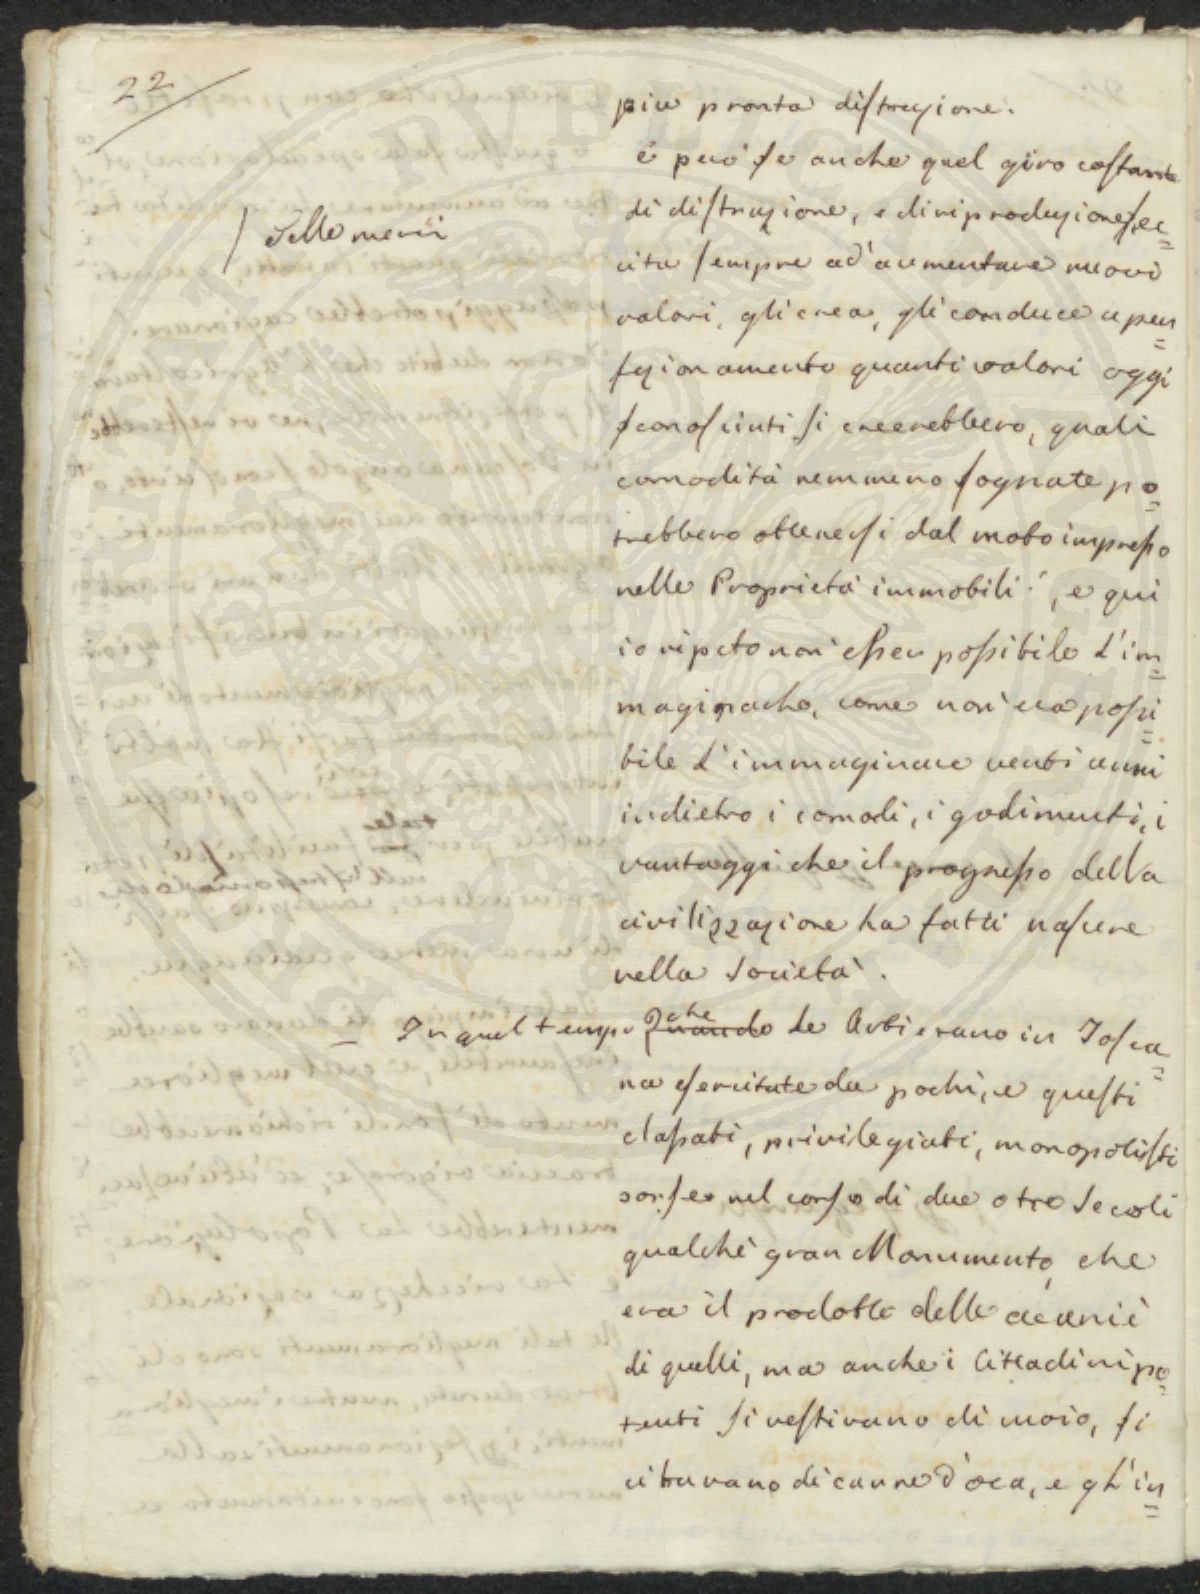 22
più pronta distruzione.
è però se anche quel giro costante
delle merci
di distruzione, e di riproduzione, ec=
cita sempre ad aumentare nuovi
valori, gli crea, gli conduce a per=
fezionamento quanti valori oggi
sconosciuti si creerebbero, quali
comodità nemmeno sognate po=
trebbero ottenersi dal moto impresso
nelle Proprietà immobili!, e qui
io ripeto non esser possibile l'im=
maginarlo, come non era possi=
bile l'immaginare venti anni
indietro i comodi, i godimenti, i
vantaggi che il progresso della
civilizzazione ha fatti nascere
nella Società.
In quel tempo Quando che le Arti erano in Tosca=
na esercitate da pochi, e questi
classati, privilegiati, monopolisti
sorse nel corso di due o tre Secoli
qualche gran Monumento, che
era il prodotto delle
di quelli, ma anche i Cittadini po=
tenti si vestivano di, si
cibavano di carne d'oca, e gl'in=